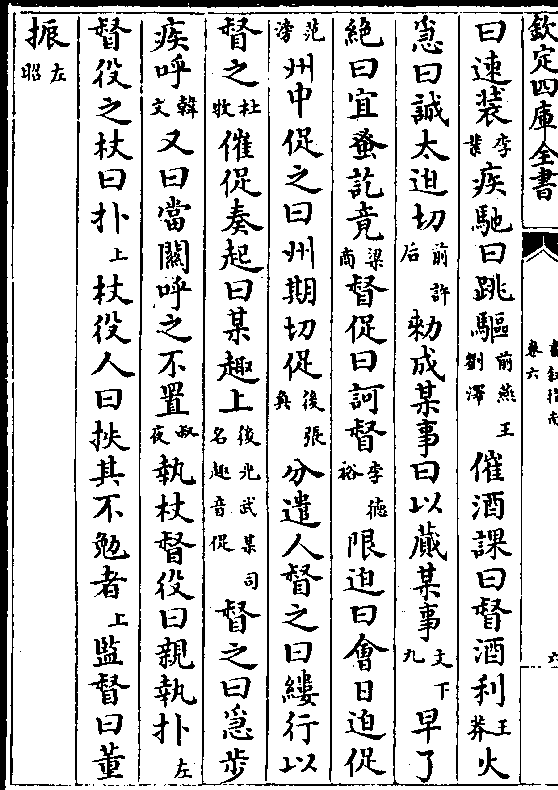 欽定四庫全書
卷六
六
曰速裝李業疾馳曰跳驅前燕王劉澤催酒課曰督酒利王莽火
怱曰誠太迫切前許后勑成某事曰以蕆某事文九下早了
絶曰宜蚤訖竟梁商督促曰訶督李德裕限迫曰會日迫促
范滂州中促之曰州期切促後張奐分遣人督之曰縷行以
督之杜牧催促奏起曰某趣上後光武某司名趣音促督之曰怱歩
疾呼韓文又曰當關呼之不置叔夜執杖督役曰親執扑左
督役之杖曰扑上杖役人曰抶其不勉者上監督曰董
振左昭